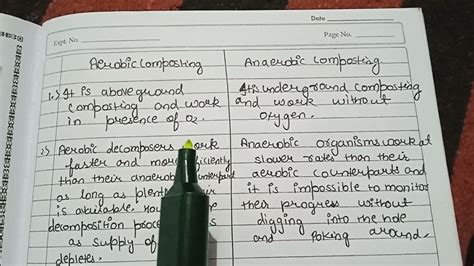 Date
Expt. No.
Page No.
Aerobic Composting
Anaerobic Composting
1.) It is aboveground
composting and work
in presence of O2.
It is underground composting
and work without
oxygen.
2) Aerobic decomposers work
faster and more efficiently
than their anaerobic
as long as
is available.
decomposition
as supply of
depletes.
Anaerobic organisms work at
slower rates than their
aerobic counterparts and
it is impossible to monitor
their progress without
digging into the hole
and poking around.